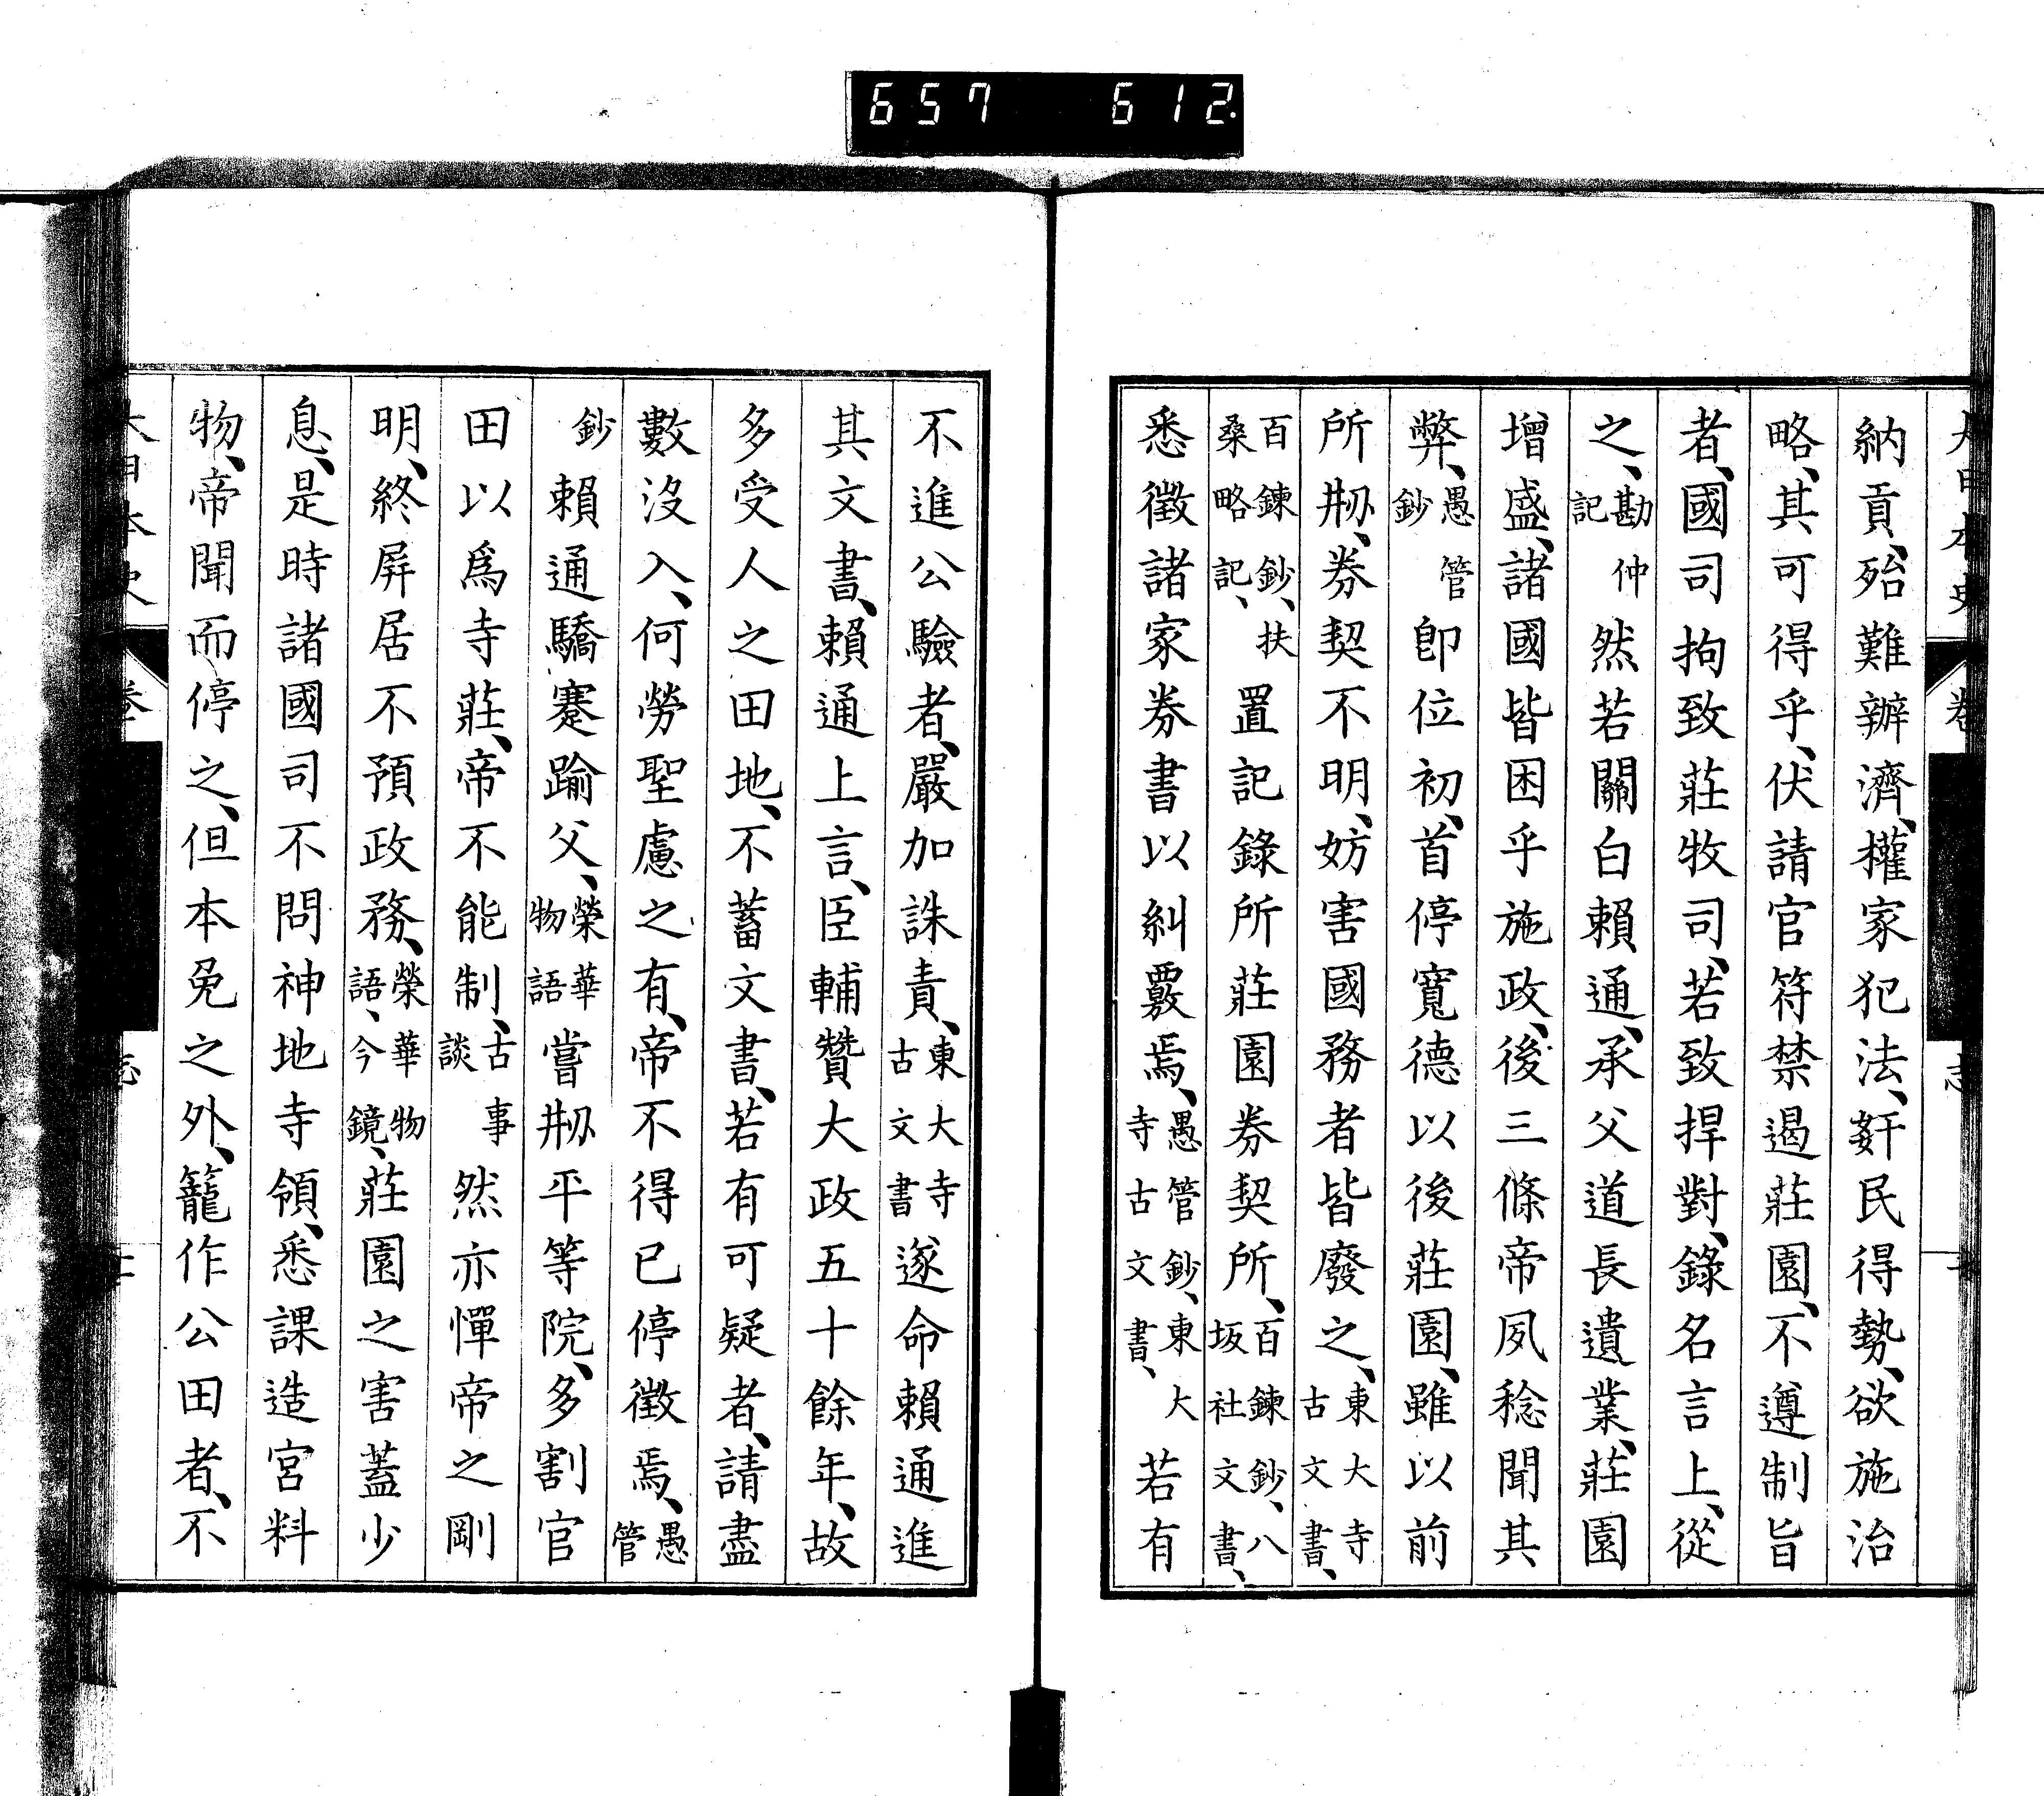 657 612.
大日本史 卷 志
納貢、殆難辦濟、權家犯法、姧民得勢、欲施治
略、其可得乎、伏請官符禁遏莊園、不遵制旨
者、國司拘致莊牧司、若致捍對、錄名言上、從
之、勘仲記然若關白賴通、承父道長遺業、莊園
增盛、諸國皆困乎施政、後三條帝夙稔聞其
弊、愚管鈔卽位初、首停寬德以後莊園、雖以前
所剏、券契不明、妨害國務者皆廢之、東大寺古文書、
百鍊鈔、扶桑略記、置記錄所莊園券契所、百鍊鈔、八坂社文書、
悉徵諸家券書以糾覈焉、愚管鈔、東大寺古文書、若有
不進公驗者、嚴加誅責、東大寺古文書遂命賴通進
其文書、賴通上言、臣輔贊大政五十餘年、故
多受人之田地、不蓄文書、若有可疑者、請盡
數沒入、何勞聖慮之有、帝不得已停徵焉、愚管
鈔賴通驕蹇踰父、榮華物語嘗剏平等院、多割官
田以爲寺莊、帝不能制、古事談然亦憚帝之剛
明、終屏居不預政務、榮華物語、今鏡、莊園之害蓋少
息、是時諸國司不問神地寺領、悉課造宮料
物、帝聞而停之、但本免之外、籠作公田者、不
大日本史 卷 志